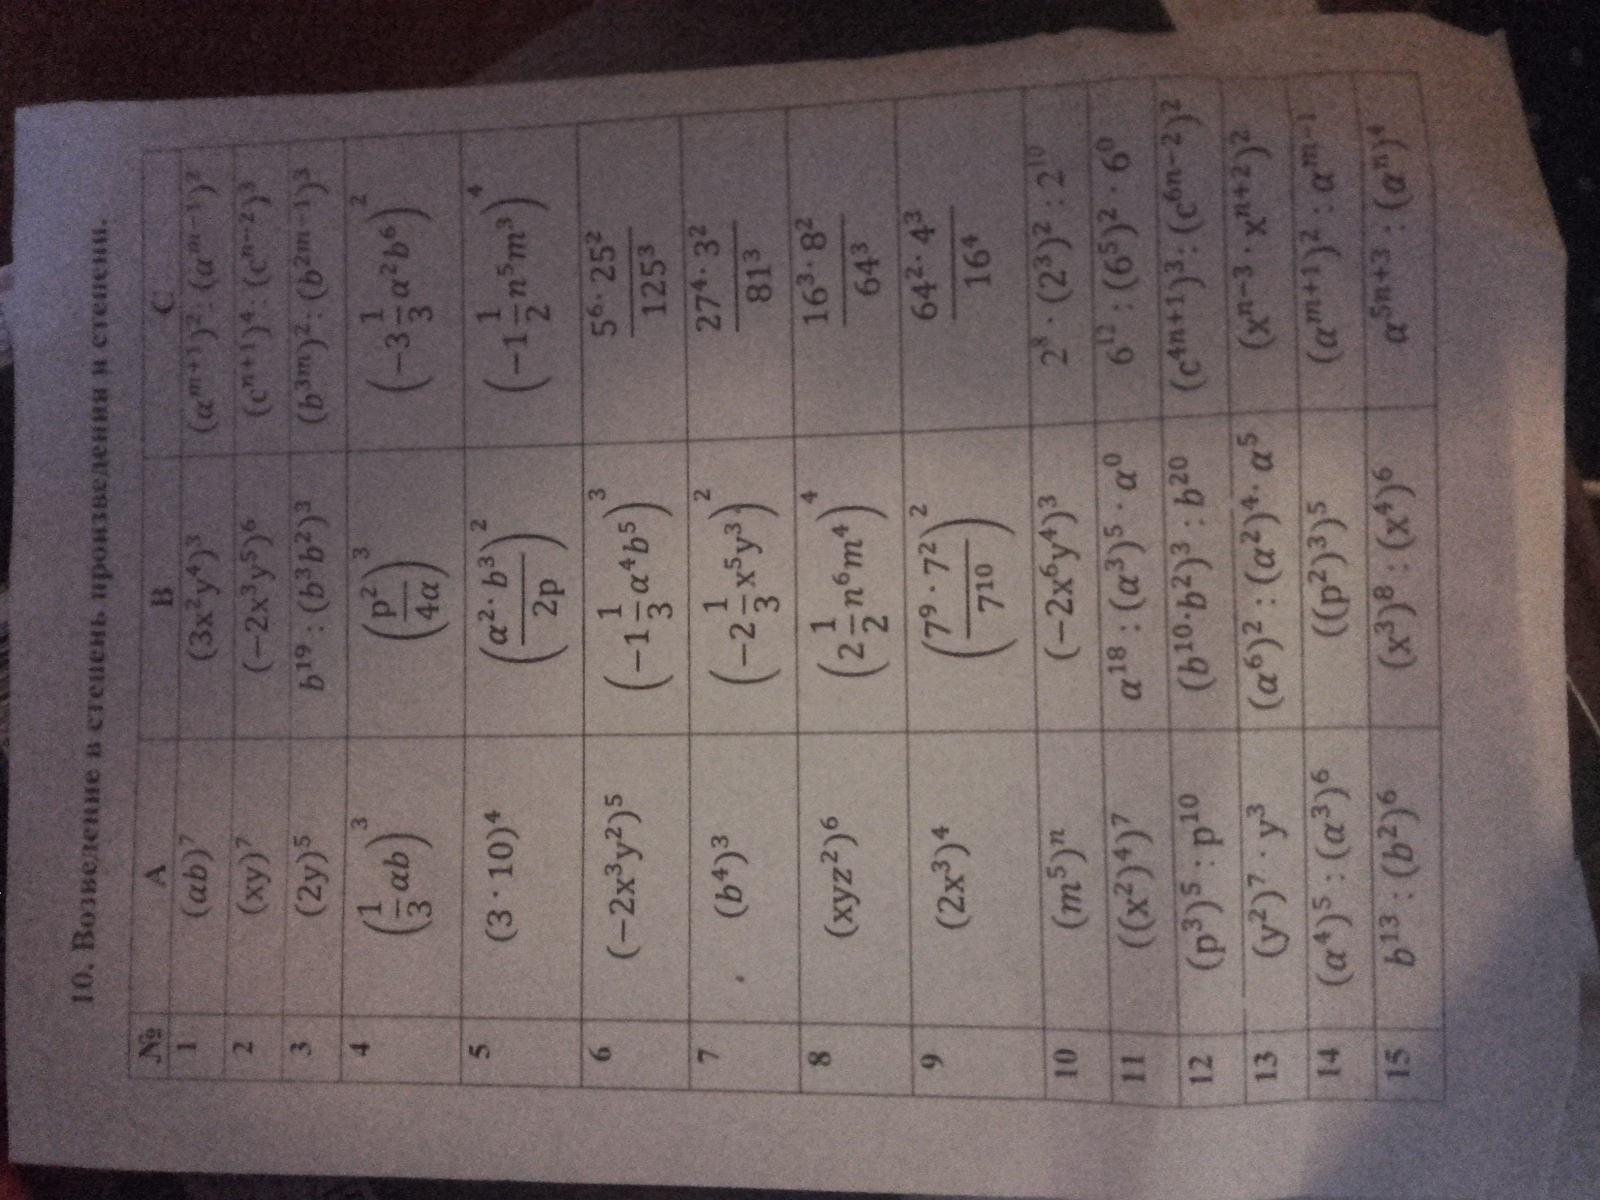 10. Возведение в степень произведения и степени.
№ A B C
1 (ab)⁷ (3x²y⁴)³ (a^(m+1))² : (a^(m−1))²
2 (xy)⁷ (−2x³y⁵)⁶ (c^(n+1))⁴ : (c^(n−2))³
3 (2y)⁵ b¹⁹ : (b³b²)³ (b^(3m))² : (b^(2m−1))³
4 (1/3 ab)³ (p²/4a)³ (−3 1/3 a²b⁶)²
5 (3 · 10)⁴ (a² · b³/2p)² (−1 1/2 n⁵m³)⁴
6 (−2x³y²)⁵ (−1 1/3 a⁴b⁵)³ 5⁶ · 25²/125³
7 (b⁴)³ (−2 1/3 x⁵y³)² 27⁴ · 3²/81³
8 (xyz²)⁶ (2 1/2 n⁶m⁴)⁴ 16³ · 8²/64³
9 (2x³)⁴ (7⁹ · 7²/7¹⁰)² 64² · 4³/16⁴
10 (m⁵)ⁿ (−2x⁶y⁴)³ 2⁸ · (2³)² : 2¹⁰
11 ((x²)⁴)⁷ a¹⁸ : (a³)⁵ · a⁰ 6¹² : (6⁵)² · 6⁰
12 (p³)⁵ : p¹⁰ (b¹⁰·b²)³ : b²⁰ (c^(4n+1))³ : (c^(6n−2))²
13 (y²)⁷ · y³ (a⁶)² : (a²)⁴ · a⁵ (x^(n−3) · x^(n+2))²
14 (a⁴)⁵ : (a³)⁶ ((p²)³)⁵ (a^(m+1))² : a^(m−1)
15 b¹³ : (b²)⁶ (x³)⁸ : (x⁴)⁶ a^(5n+3) : (aⁿ)⁴